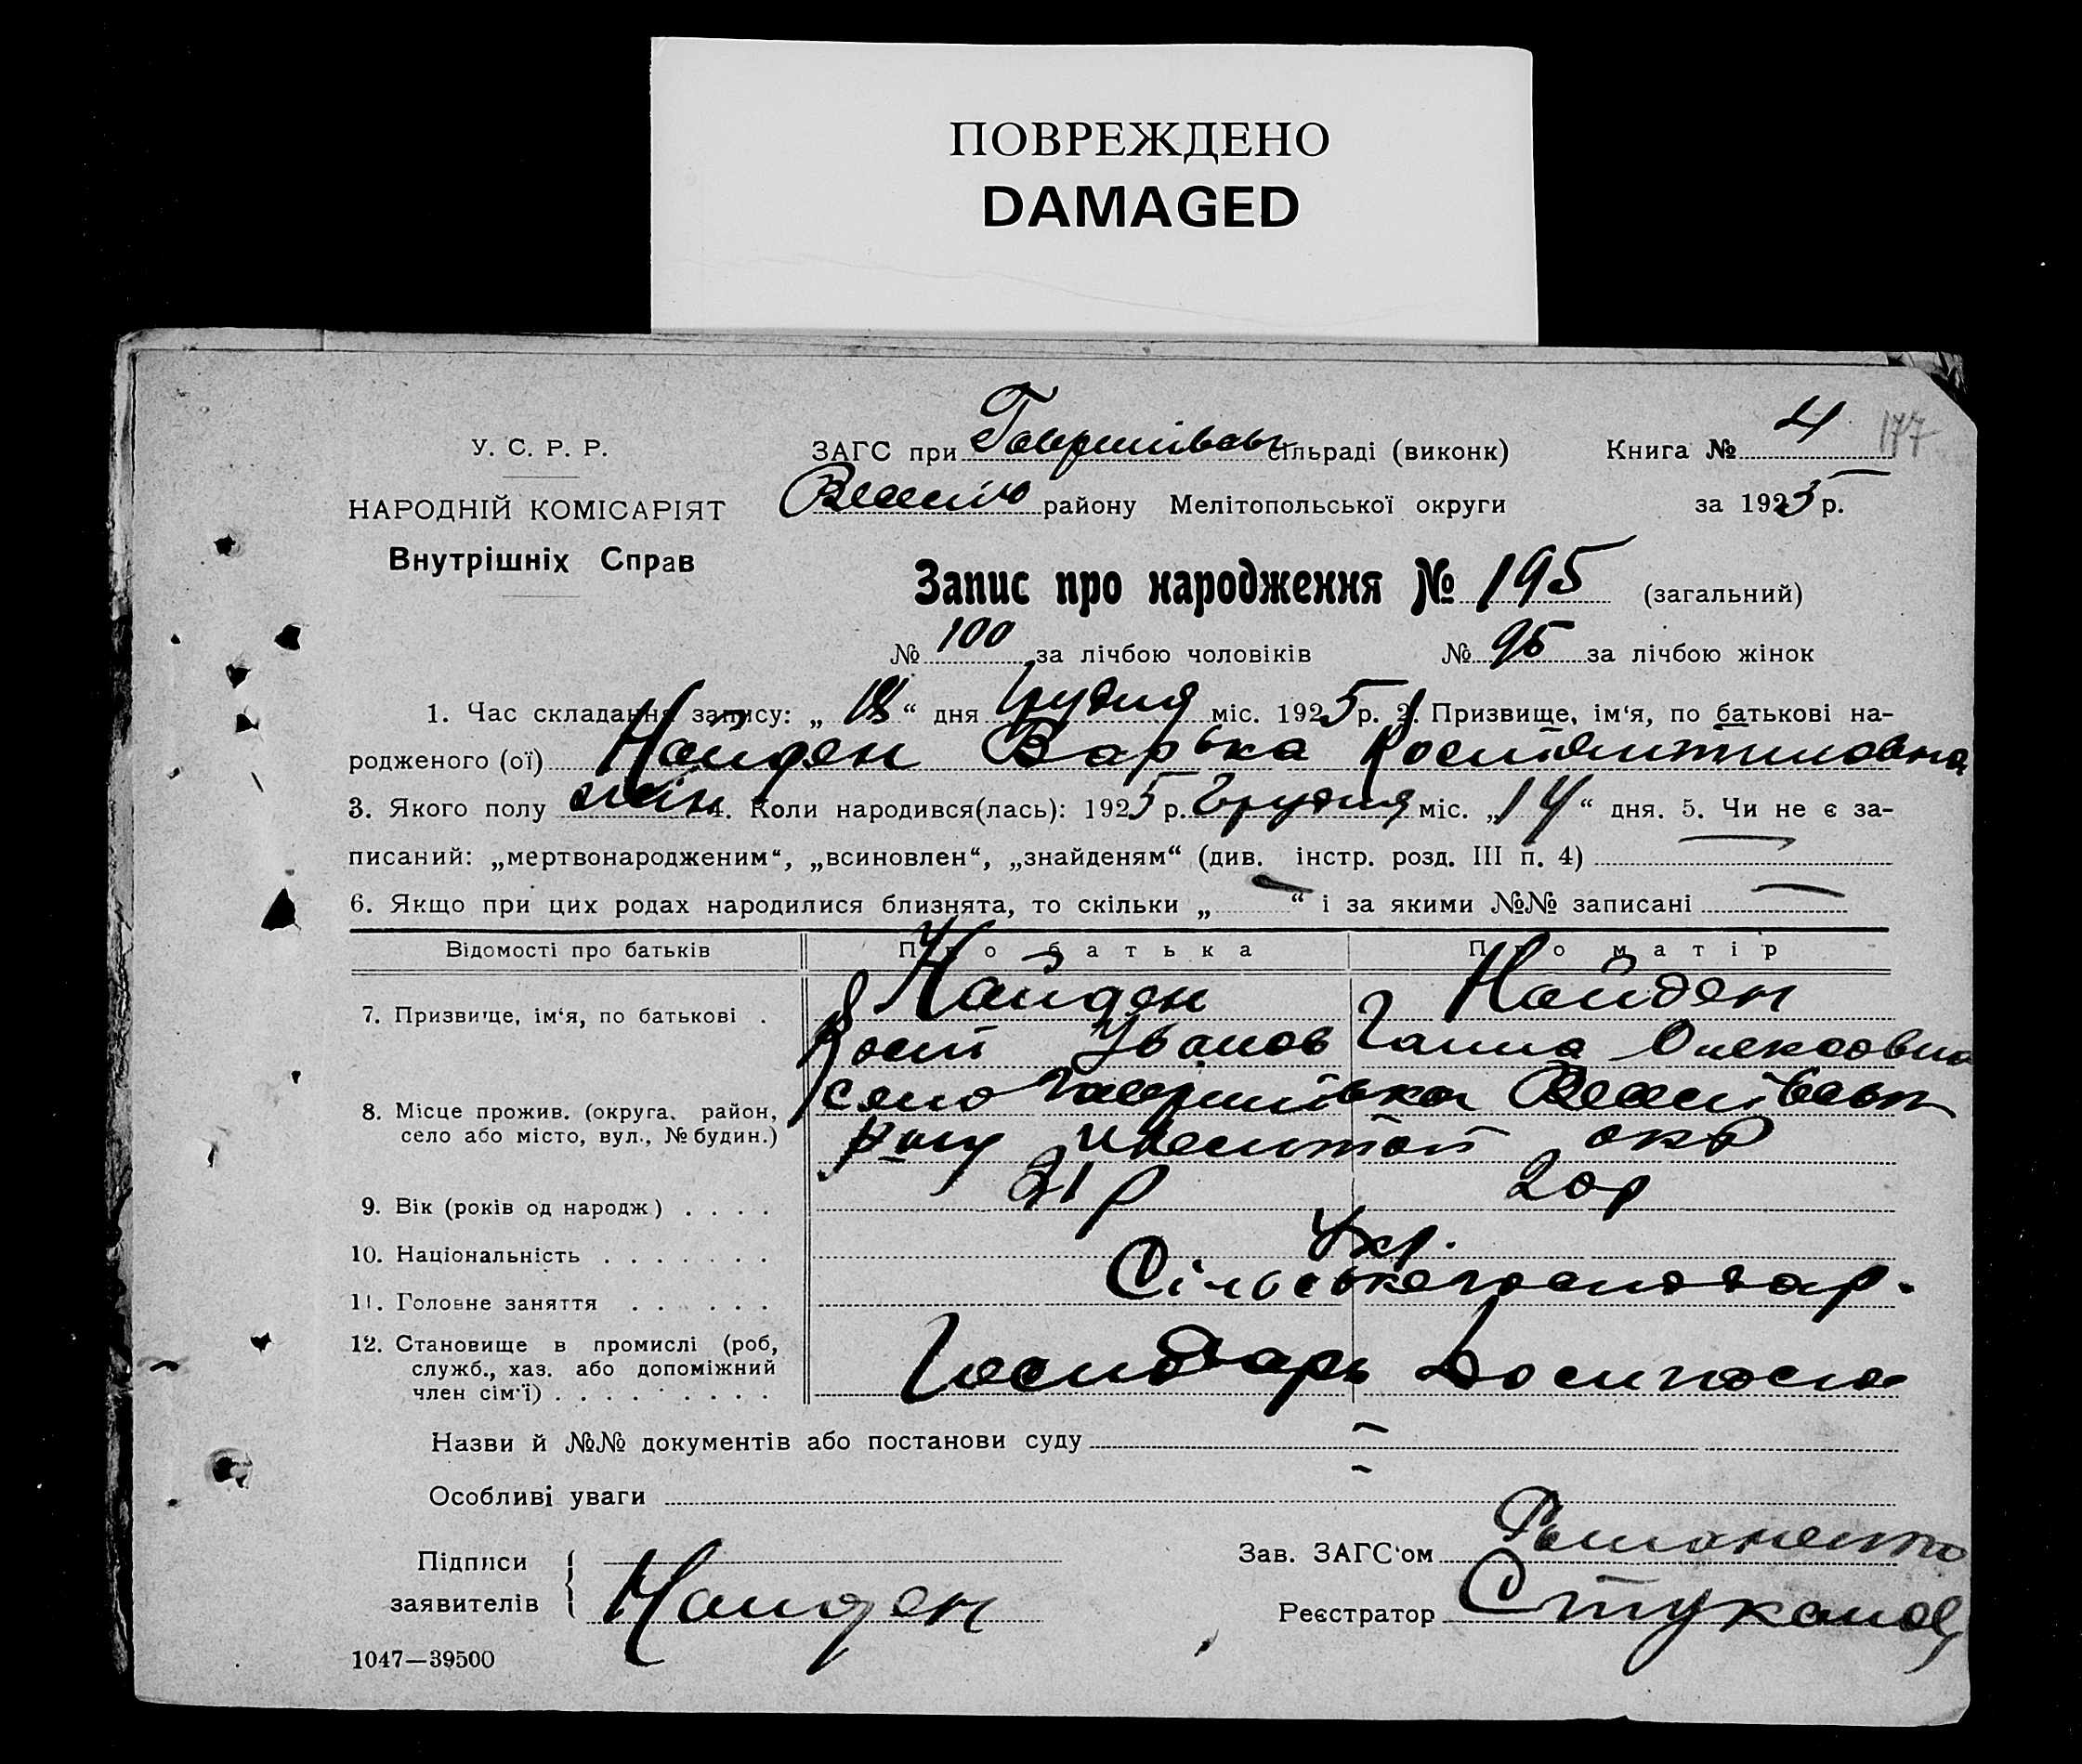 ПОВРЕЖДЕНО
DAMAGED
У. С. Р. Р.
НАРОДНІЙ КОМІСАРІЯТ
Внутрішніх Справ
ЗАГС при Гаврилівськ сільраді (виконк)
району Мелітопольської округи
Книга № 4
177
за 1925 р.
Запис про народження № 195 (загальний)
№ 100 за лічбою чоловіків № 95 за лічбою жінок
1. Час складання запису: „ 18 “ дня Грудня міс. 1925 р. 2. Призвище, ім‘я, по батькові на-
родженого (ої) Найден Варька Костянтиновна
3. Якого полу жін 4. Коли народився(лась): 1925 р. Грудня міс. „14“ дня. 5. Чи не є за-
писаний: „мертвонародженим“, „всиновлен“, „знайденям“ (див. інстр. розд. III п. 4) —
6. Якщо при цих родах народилися близнята, то скільки „ — “ і за якими №№ записані —
Відомості про батьків Про батька Про матір
7. Призвище, ім‘я, по батькові . Найден Найден
Кост Иванов Ганна Олексовна
8. Місце прожив. (округа, район, село або місто, вул., № будин.) село Гаврилівка
окр
9. Вік (років од народж) . . . . 31 р 20 р
10. Національність . . . . . . . Укр.
11. Головне заняття . . . . . . Сільськегосподар.
12. Становище в промислі (роб, служб., хаз. або допоміжний член сім‘ї) . . . . . . . . . Господарь
Назви й №№ документів або постанови суду —
Особливі уваги —
Підписи заявителів Найден
Зав. ЗАГС‘ом Романенко
Реєстратор Стуканов
1047—39500